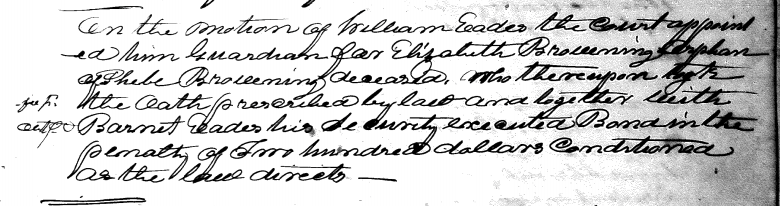 On the motion of William Eades the court appoint
ed him Guardian for Elizabeth Browening orphan
of Phebe Browening deceased. Who thereupon took
the Oath prescribed by law and together with
Barnet Eades his Security executed Bond in the
penalty of Two hundred dollars Conditioned
as the law directs —